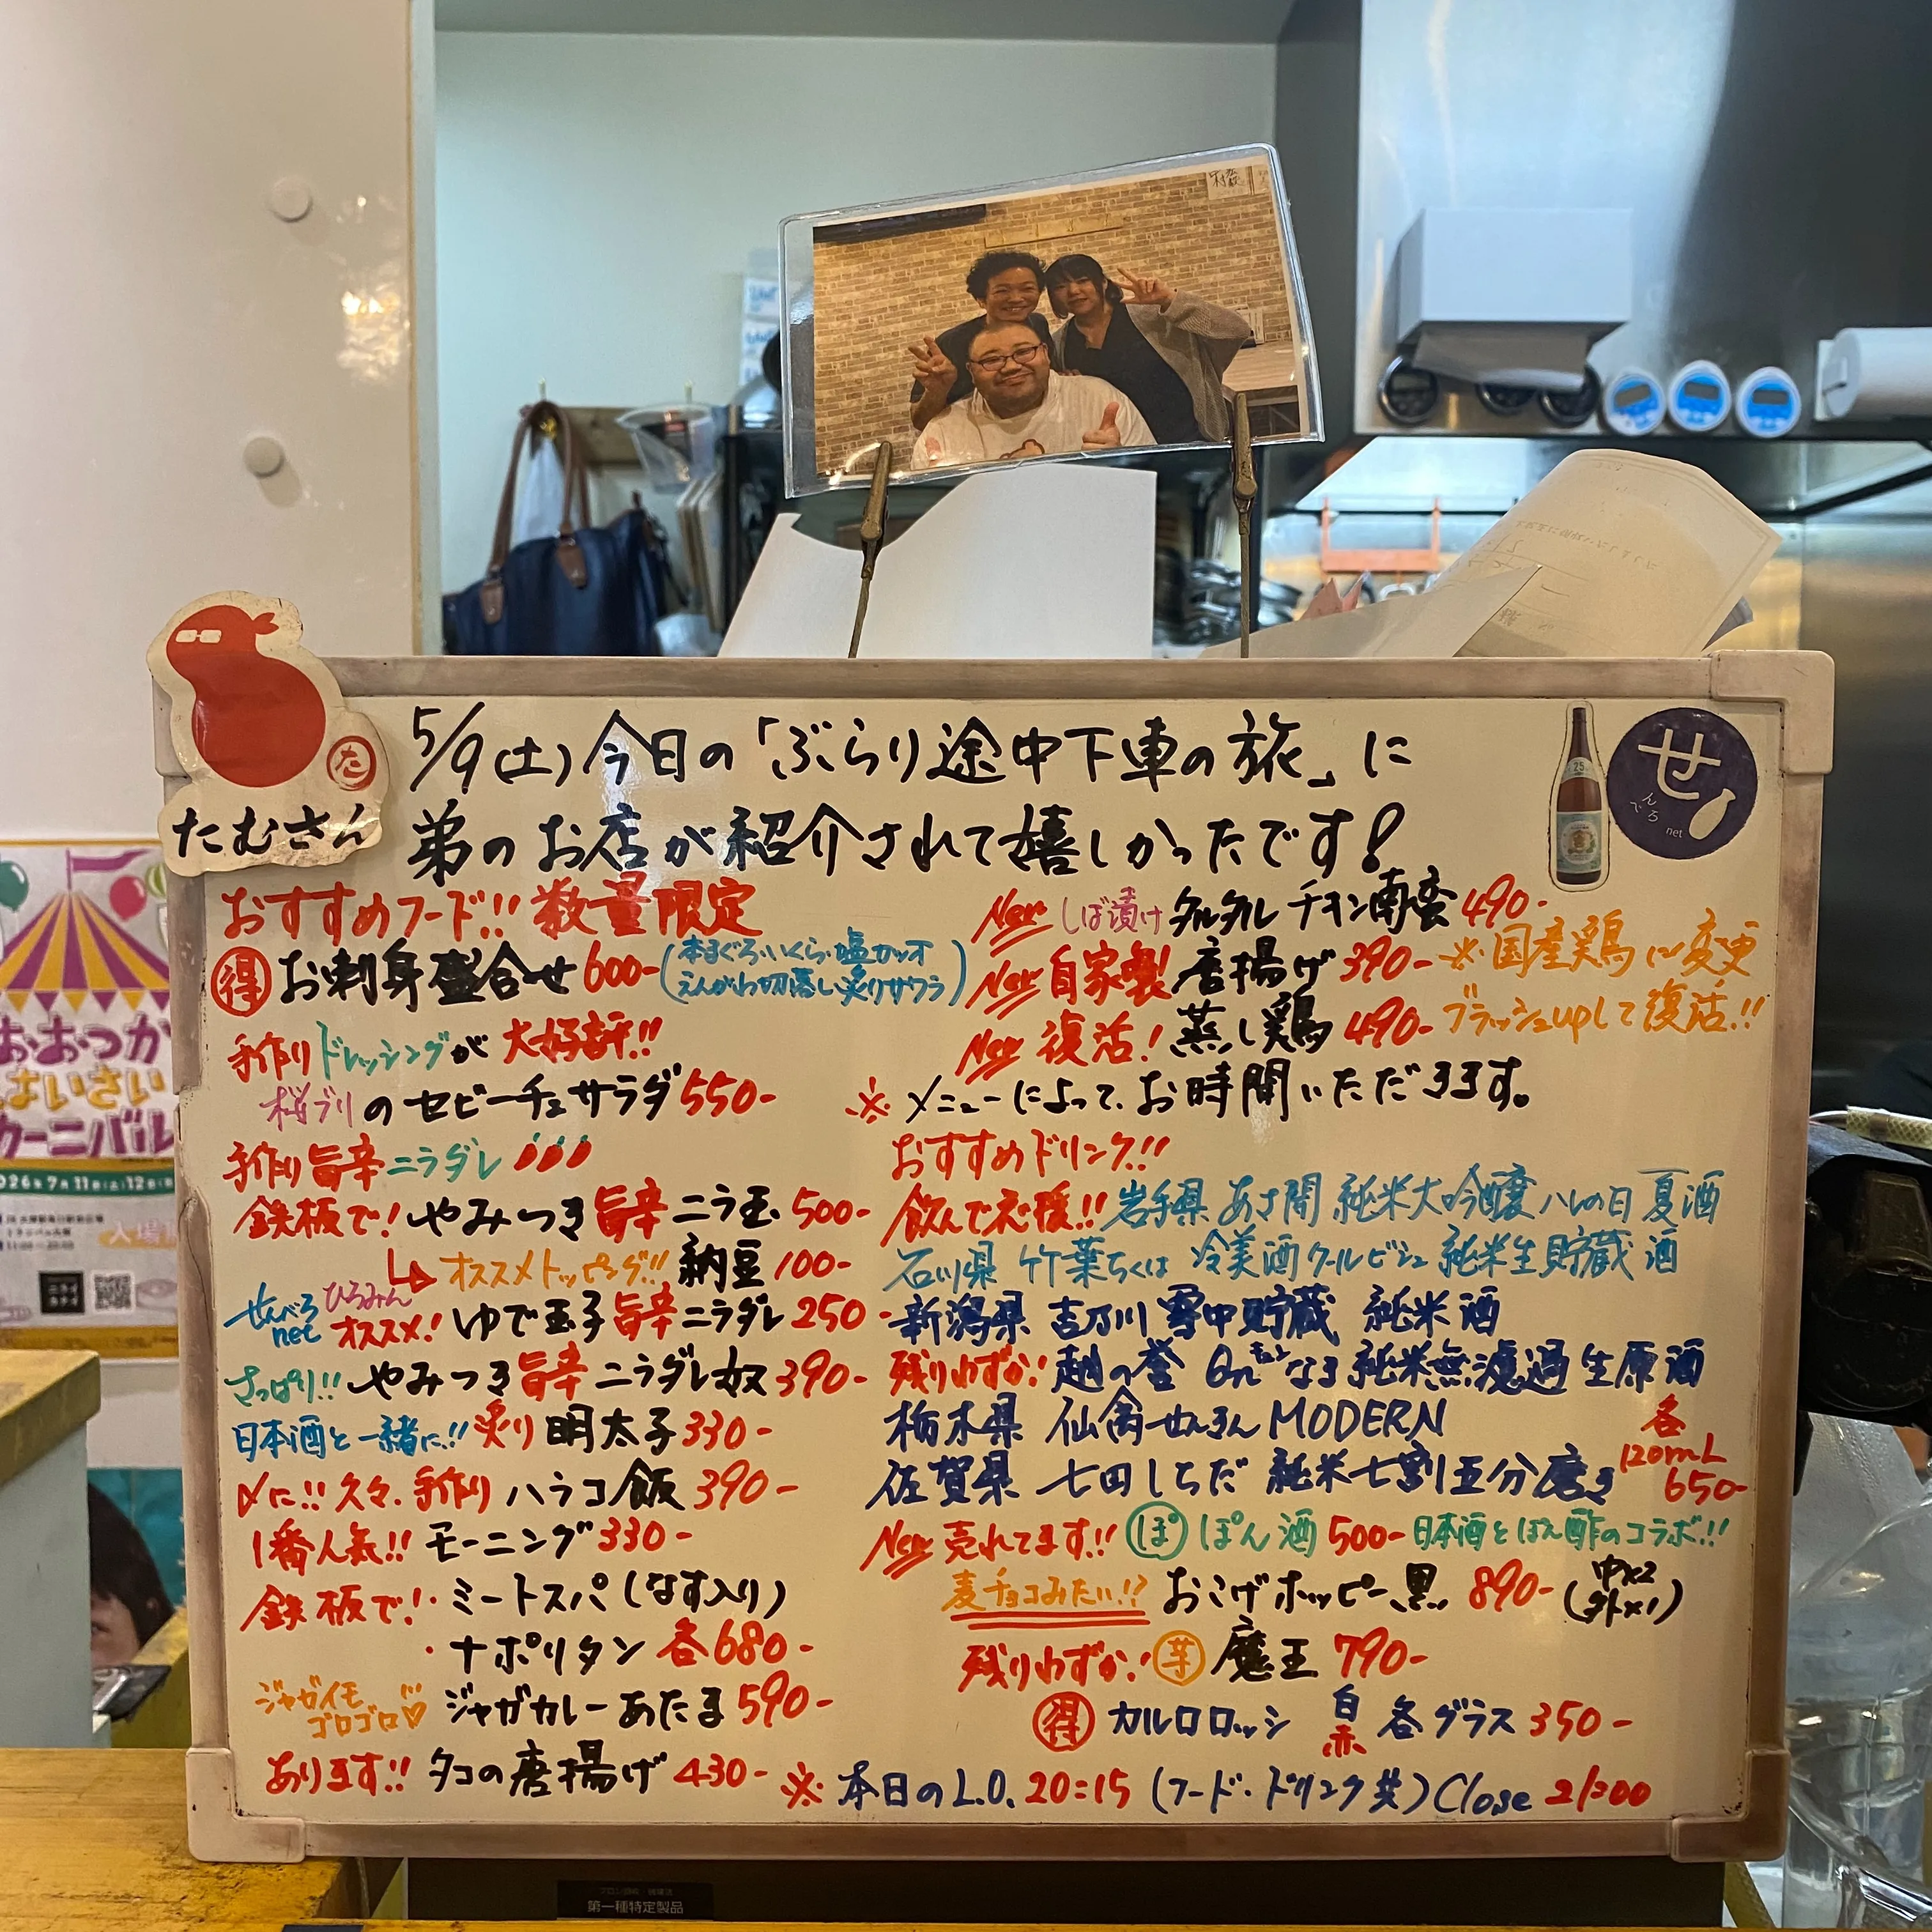 5/9(土)今日の「ぶらり途中下車の旅」に
弟のお店が紹介されて嬉しかったです!
た
たむさん
25
せ
んべろ
net
おすすめフード!! 数量限定
得 お刺身盛合せ 600-(本まぐろ・いくら・塩カツオ
えんがわ切落し炙りサワラ)
手作りドレッシングが大好評!!
桜ブリのセビーチェサラダ 550-
手作り旨辛ニラダレ
鉄板で!やみつき旨辛ニラ玉 500-
オススメトッピング!! 納豆 100-
せんべろ
net
ひろみん
オススメ!ゆで玉子旨辛ニラダレ 250-
さっぱり!!やみつき旨辛ニラダレ奴 390-
日本酒と一緒に!! 炙り明太子 330-
〆に!!久々、手作りハラコ飯 390-
1番人気!! モーニング 330-
鉄板で!・ミートスパ(なす入り)
・ナポリタン 各680-
ジャガイモ
ゴロゴロ♡
ジャガカレーあたま 590-
あります!! タコの唐揚げ 430-
New しば漬けタルタルチキン南蛮 490-
New 自家製唐揚げ 390-
※国産鶏に変更
ブラッシュupして復活!!
New 復活!蒸し鶏 490-
※メニューによって、お時間いただきます。
おすすめドリンク!!
飲んで応援!! 岩手県 あさ開 純米大吟醸 ハレの日 夏酒
石川県 竹葉ちくは 冷美酒クールビシュ 純米生貯蔵酒
新潟県 吉乃川 雪中貯蔵 純米酒
残りわずか!越の誉 純米無濾過生原酒
栃木県 仙禽せんきん MODERN
佐賀県 七田しちだ 純米七割五分磨き
各
120mL
650-
New 売れてます!! ぽ ぽん酒 500- 日本酒とぽん酢のコラボ!!
麦チョコみたい!? おこげホッピー黒 890-(中×2
外×1)
残りわずか!芋 魔王 790-
得 カルロロッシ 白
赤 各グラス 350-
※本日のL.O. 20:15(フード・ドリンク共)Close 21:00
おおつか
はいさい
カーニバル
2026年7月11日(土)12日
入場
第一種特定製品